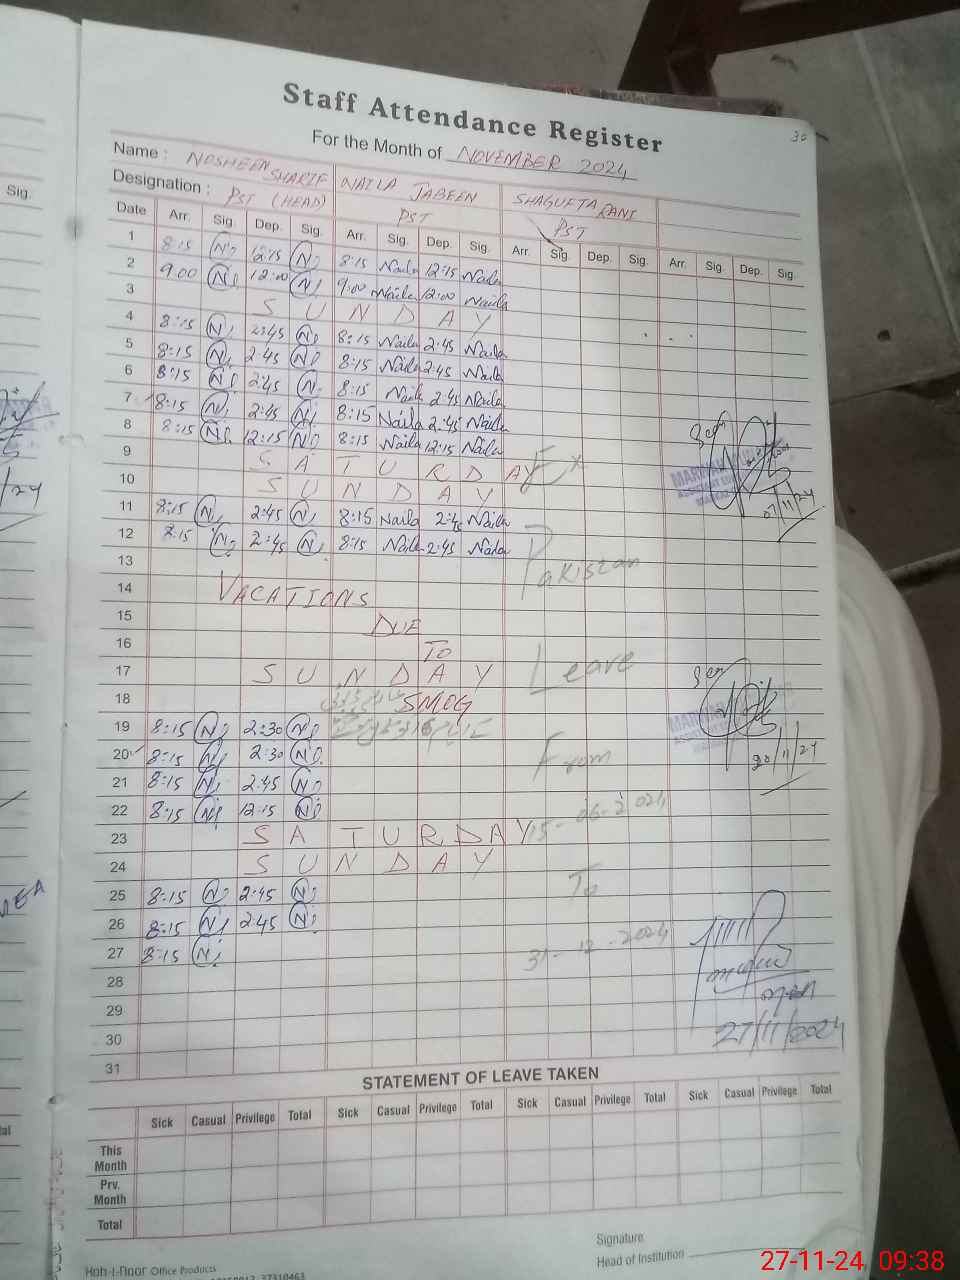 30
Staff Attendance Register
For the Month of NOVEMBER 2024
Name : NOSHEEN SHARIF NAILA JABEEN SHAGUFTA RANI
Designation : PST (HEAD) PST PST
Date Arr. Sig. Dep. Sig. Arr. Sig. Dep. Sig. Arr. Sig. Dep. Sig. Arr. Sig. Dep. Sig.
1 8:15 N 12:15 N 8:15 Naila 12:15 Naila
2 9:00 N 12:00 N 9:00 Naila 12:00 Naila
3 SUNDAY
4 8:15 N 2:45 N 8:15 Naila 2:45 Naila
5 8:15 N 2:45 N 8:15 Naila 2:45 Naila
6 8:15 N 2:45 N 8:15 Naila 2:45 Naila
7 8:15 N 2:45 N 8:15 Naila 2:45 Naila
8 8:15 N 12:15 N 8:15 Naila 12:15 Naila
9 SATURDAY Ex
10 SUNDAY
07/11/24
11 8:15 N 2:45 N 8:15 Naila 2:45 Naila
12 8:15 N 2:45 N 8:15 Naila 2:45 Naila
13 Pakistan
14 VACATIONS
15 DUE
16 TO
17 SUNDAY Leave
18 SMOG
19 8:15 N 2:30 N
20 8:15 N 2:30 N From 20/11/24
21 8:15 N 2:45 N
22 8:15 N 12:15 N
23 SATURDAY 15-06-2024
24 SUNDAY
25 8:15 N 2:45 N To
26 8:15 N 2:45 N
27 8:15 N 31-12-2024
28
29
30 27/11/2024
31
STATEMENT OF LEAVE TAKEN
Sick Casual Privilege Total Sick Casual Privilege Total Sick Casual Privilege Total Sick Casual Privilege Total
This
Month
Prv.
Month
Total
Signature
Head of Institution
Office Products
27-11-24 09:38
Sig.